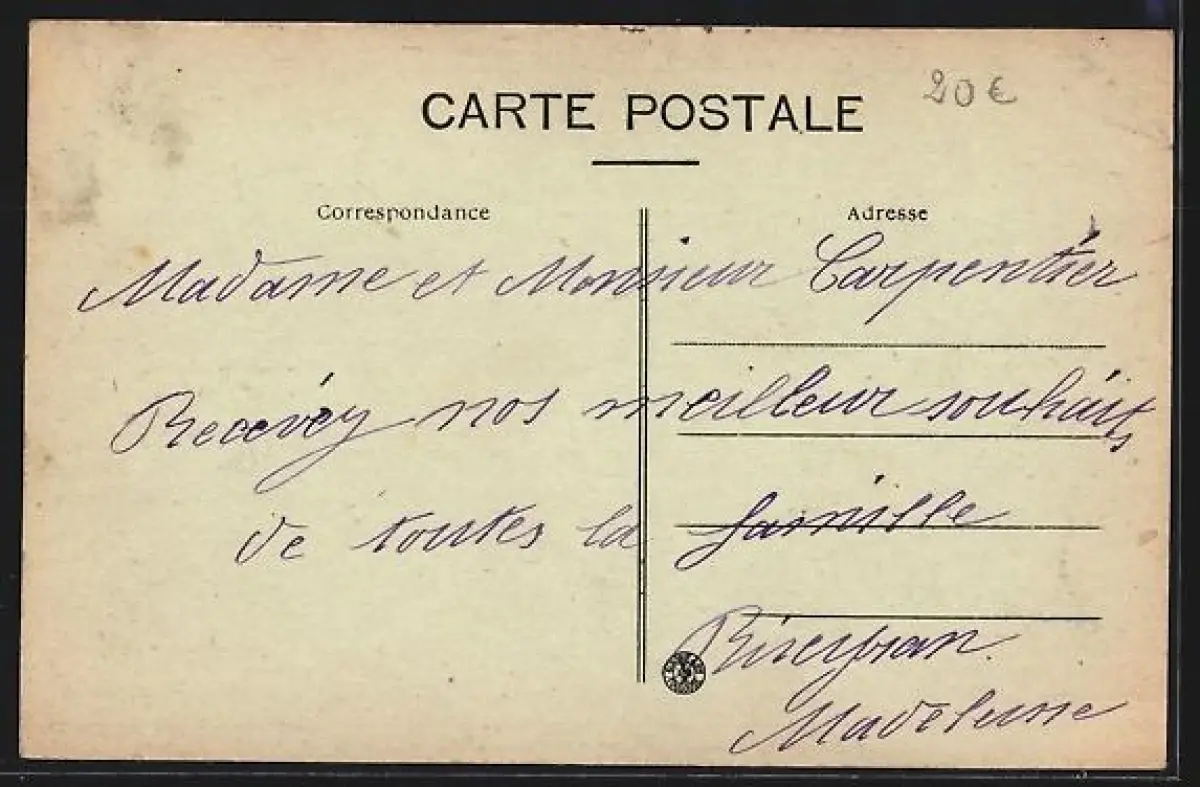 CARTE POSTALE
20€
Correspondance
Adresse
Madame et Monsieur Carpentier
Recevéz nos meilleur souhaits
de toutes la famille
Madeleine